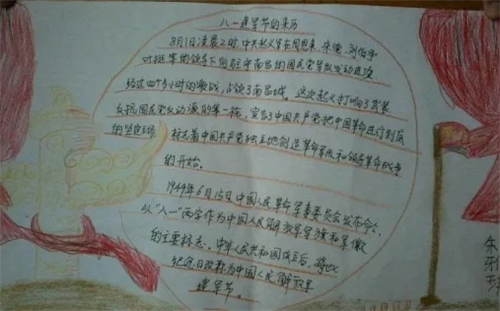 八一建军节的来历
8月1日凌晨2时,中共起义军在周恩来、朱德、刘伯承
对挺等的领导下向驻守南昌的国民党军队发动进攻
经过四个多小时的激战,占领了南昌城。这次起义打响了武装
反抗国民党反动派的第一枪,宣告了中国共产党把中国革命进行到底
的坚定立场 标志着中国共产党独立地创造革命军队和领导革命战争
的开始。
1949年6月15日中国人民革命军事委员会发布命令,
以"八一"两字作为中国人民解放军军旗和军徽
的主要标志。中华人民共和国成立后,将此
纪念日改称为中国人民解放军
建军节。
朱